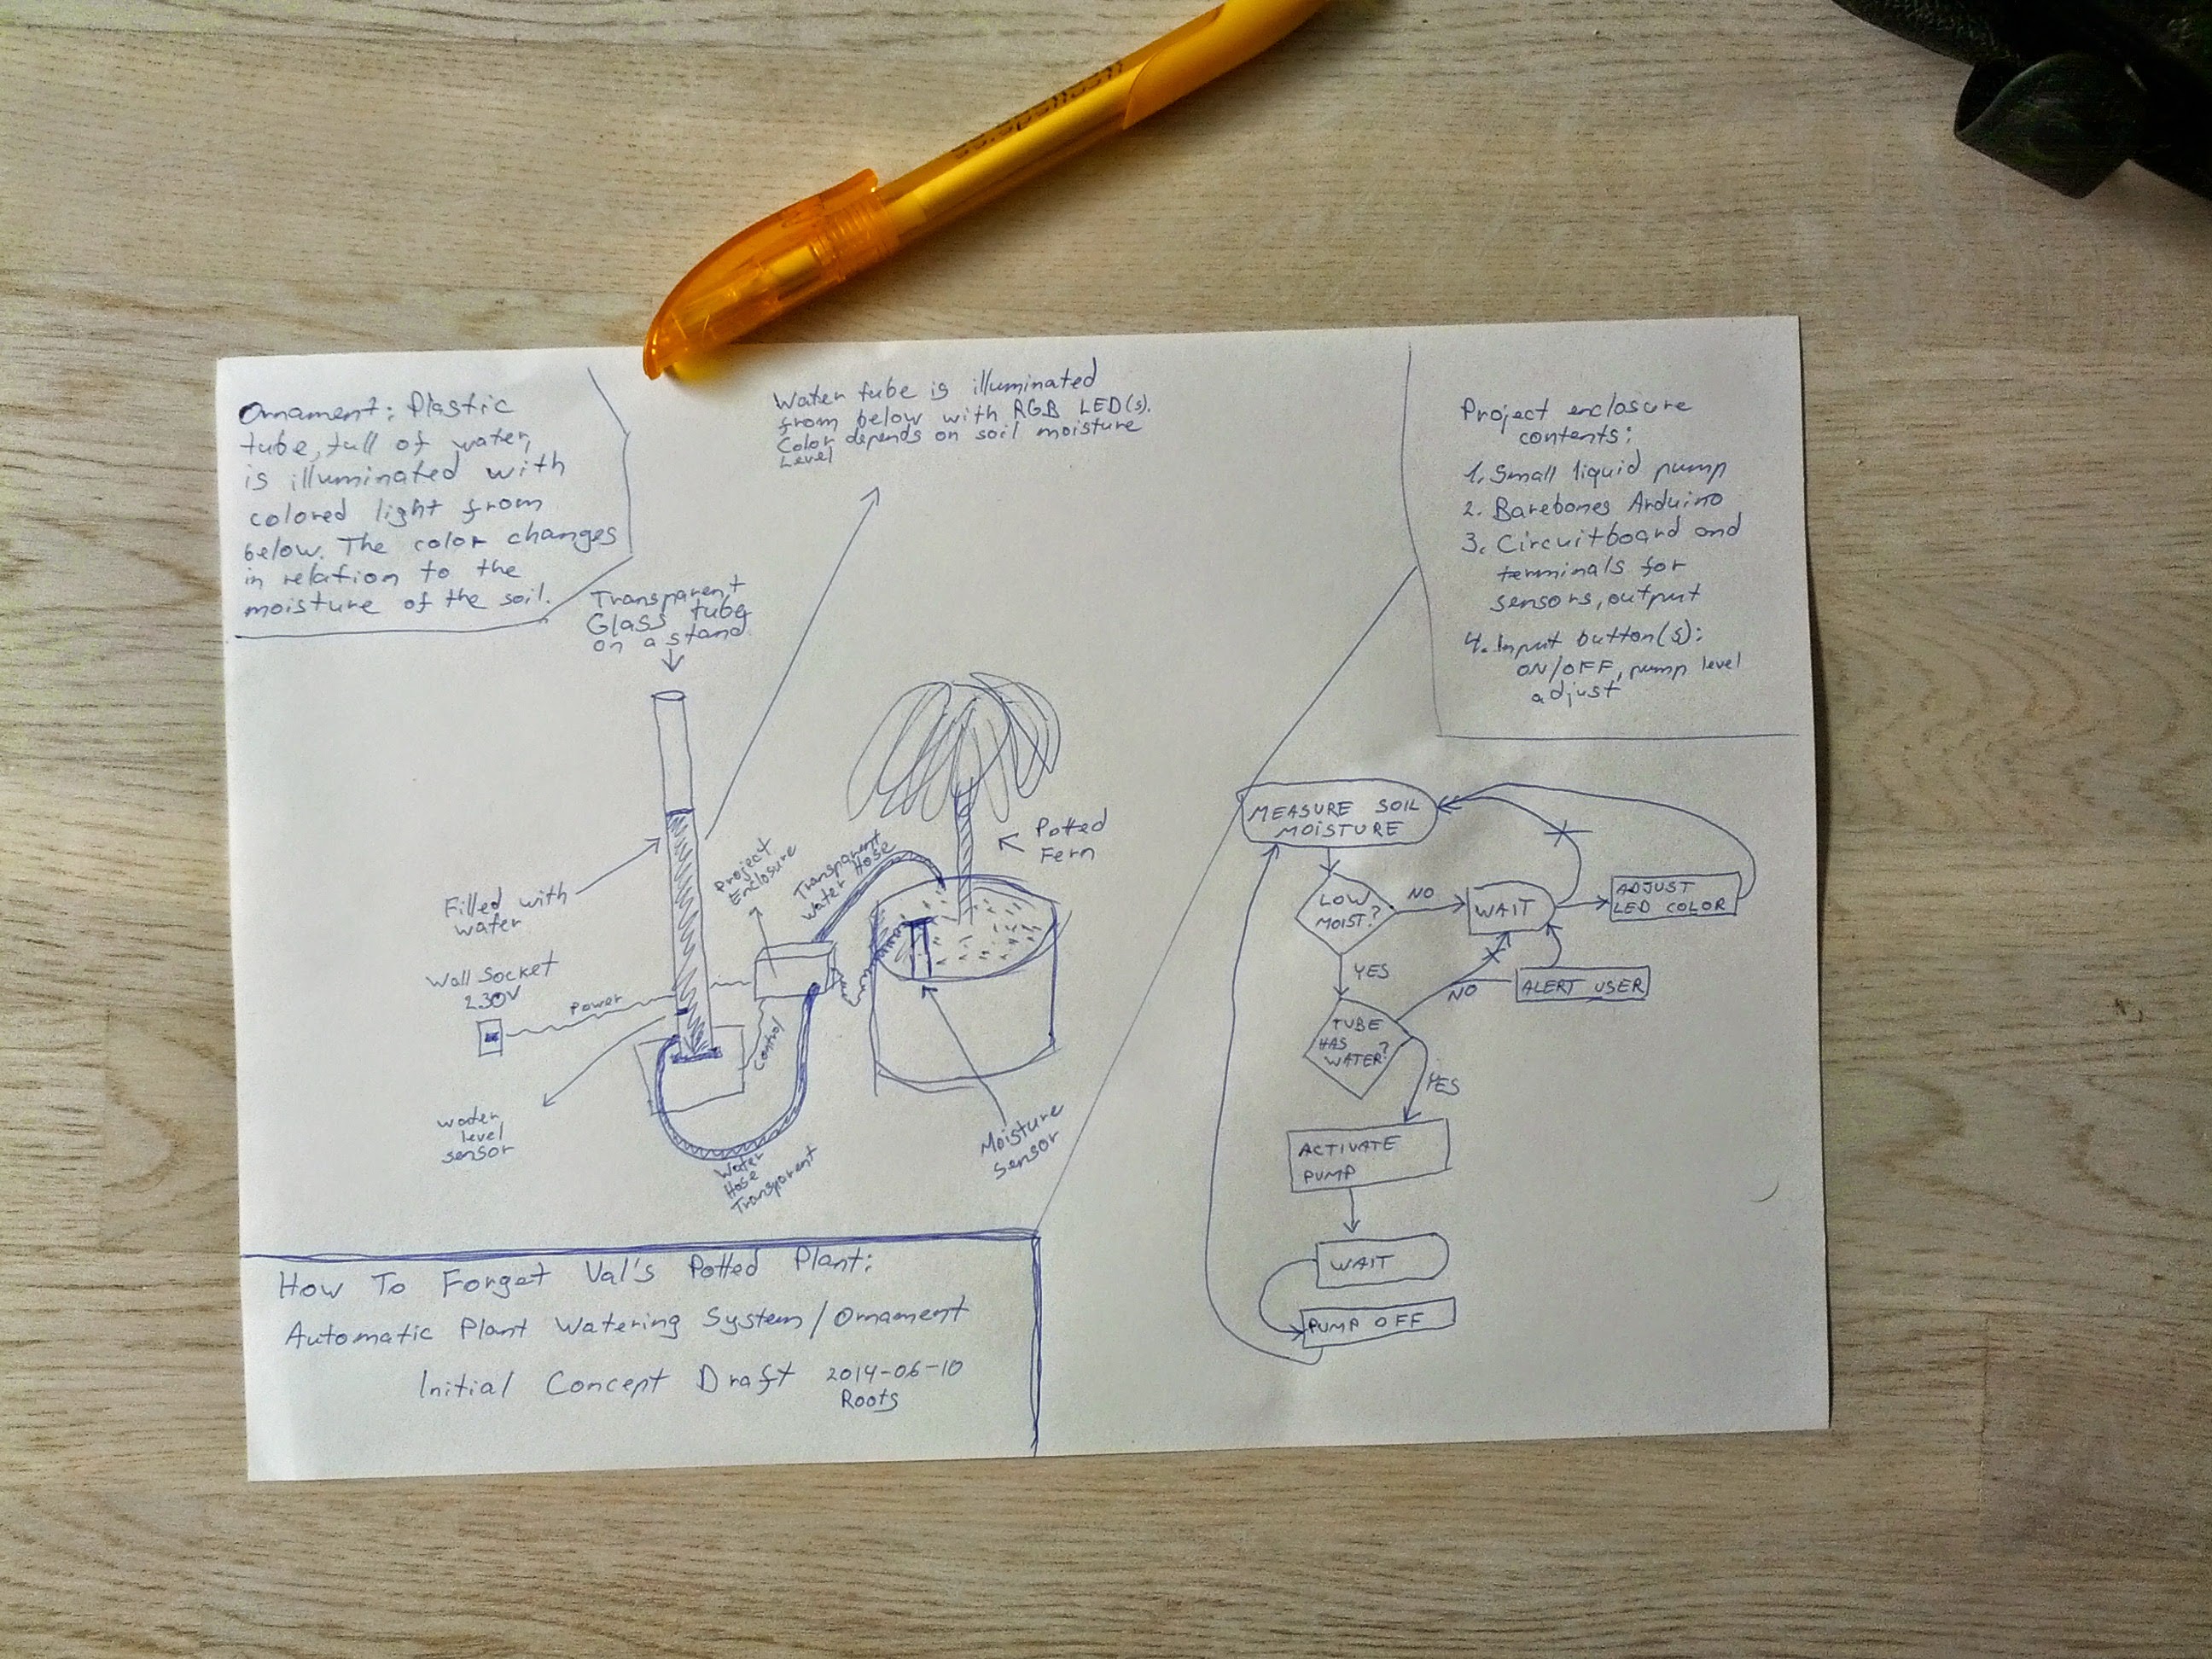 Ornament: Plastic
tube, full of water,
is illuminated with
colored light from
below. The color changes
in relation to the
moisture of the soil.
Water tube is illuminated
from below with RGB LED(s).
Color depends on soil moisture
Level
Project enclosure
contents:
1. Small liquid pump
2. Barebones Arduino
3. Circuitboard and
terminals for
sensors, output
4. Input button(s):
ON/OFF, pump level
adjust
Transparent
Glass tube
on a stand
Filled with
water
Wall Socket
230V
Power
water
level
sensor
Project
Enclosure
Transparent
Water Hose
Control
Water
Hose
Transparent
Potted
Fern
Moisture
Sensor
MEASURE SOIL
MOISTURE
LOW
MOIST?
NO
WAIT
ADJUST
LED COLOR
YES
ALERT USER
NO
TUBE
HAS
WATER?
YES
ACTIVATE
PUMP
WAIT
PUMP OFF
How To Forget Val's Potted Plant:
Automatic Plant Watering System/Ornament
Initial Concept Draft 2014-06-10
Roots